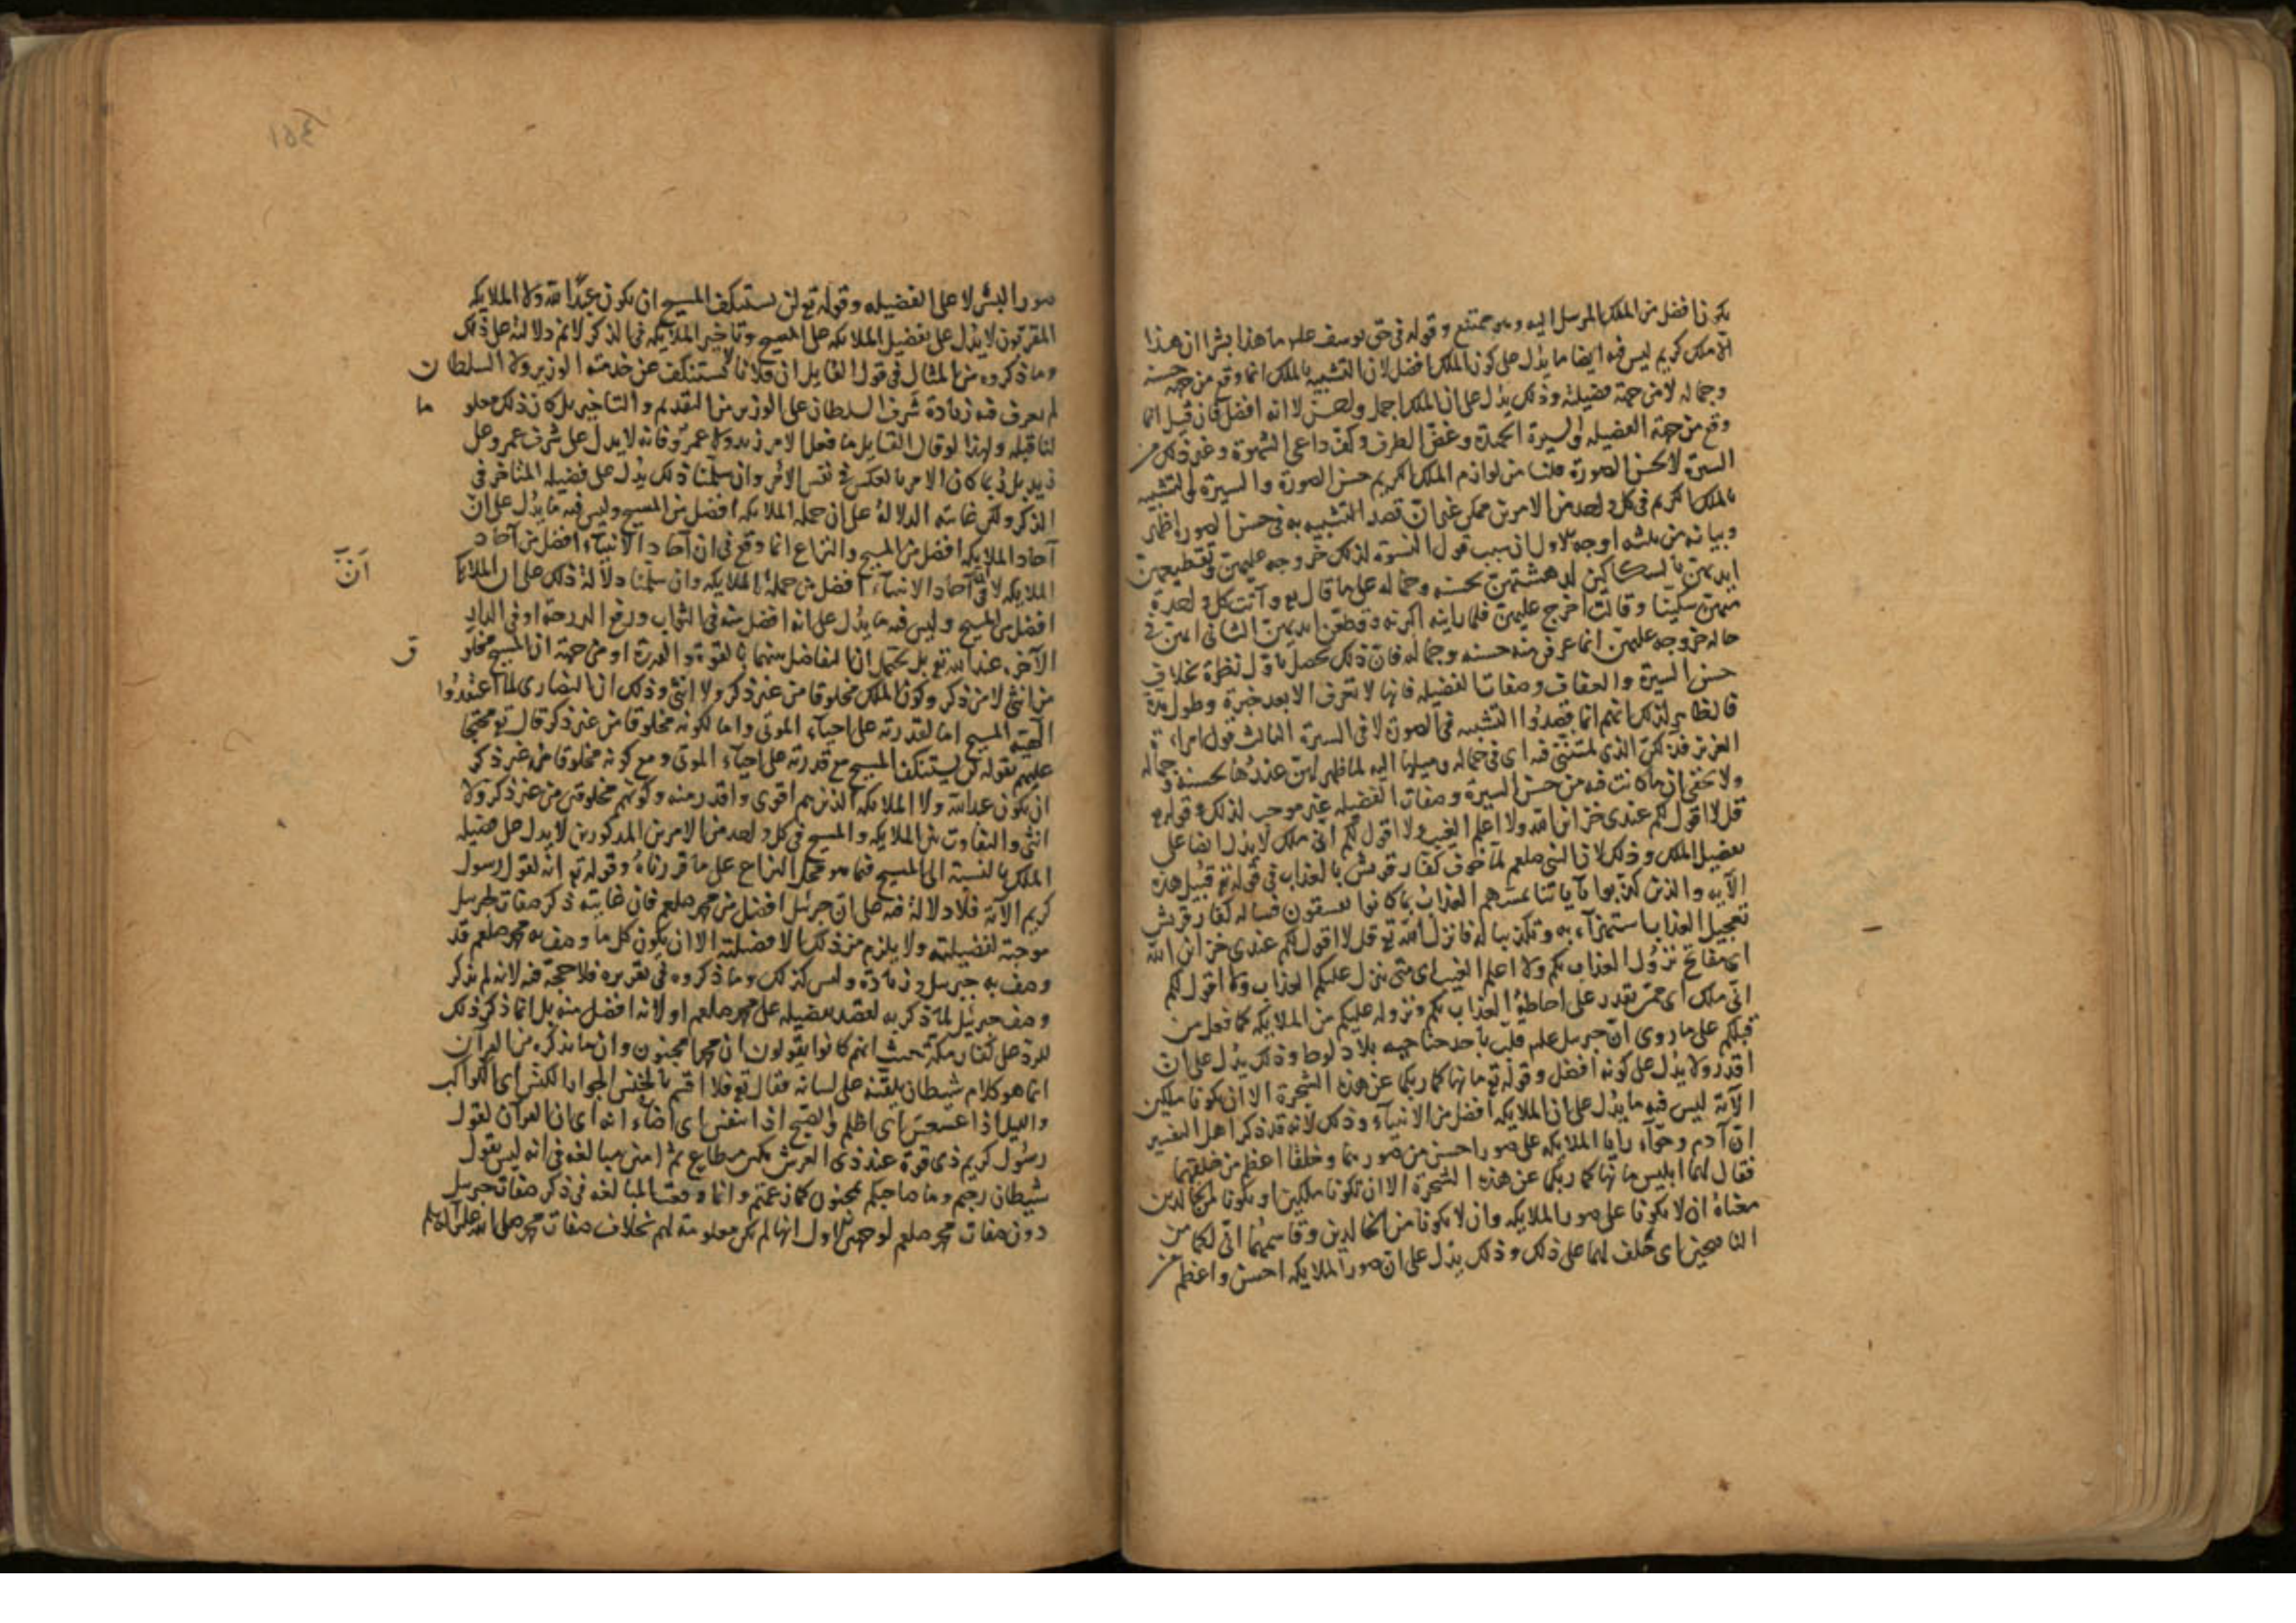 يكونا افضل من الملك المرسل اليه وهو ممتنع وقوله في حق يوسف علم ما هذا بشرا ان هذا
الا ملك كريم ليس فيه ايضا ما يدل على كون الملك افضل لان التشبيه بالملك انما وقع من جهة حسنه
وجماله لا من جهة فضيلته وذلك يدل على ان الملك اجمل واحسن لا انه افضل فان قيل انما
وقع من جهة الفضيلة والسيرة الحميدة وغض الطرف وكف داعي الشهوة وغير ذلك من
السيرة لا بحسن الصورة قلنا من لوازم الملك الكريم حسن الصورة والسيرة والتشبيه
بالملك الكريم في كل واحد من الامرين ممكن غير ان قصد التشبيه به في حسن الصور اظهر
وبيانه من ثلثه اوجه الاول ان سبب قول النسوة لذلك خروجه عليهن وتقطيعهن
ايديهن بالسكاكين لدهشتهن بحسنه وجماله على ما قال تع وآتت كل واحدة
منهن سكينا وقالت اخرج عليهن فلما راينه اكبرنه وقطعن ايديهن الثاني انهن في
حاله خروجه عليهن انما عرفن منه حسنه وجماله فان ذلك يحصل باول نظرة بخلاف
حسن السيرة والعفاف وصفات الفضيلة فانها لا تعرف الا بعد خبرة وطول مدة
فالظاهر لذلك انهم انما قصدوا التشبيه في الصورة لا في السيرة الثالث قول امراة
العزيز فذلكن الذي لمتنني فيه اي في جماله وميلها اليه لما ظهر لهن عذرها بحسنه وجماله
ولا يخفى ان ما كانت فيه من حسن السيرة وصفات الفضيلة غير موجب لذلك وقوله تع
قل لا اقول لكم عندي خزائن الله ولا اعلم الغيب ولا اقول لكم اني ملك لا يدل ايضا على
تفضيل الملك وذلك لان النبي صلعم لما خوف كفار قريش بالعذاب في قوله تع قبيل هذه
الآية والذين كذبوا بآياتنا يمسهم العذاب بما كانوا يفسقون فساله كفار قريش
تعجيل العذاب استهزآء به وتكذيبا له فانزل الله تع قل لا اقول لكم عندي خزائن الله
اي مفاتح نزول العذاب بكم ولا اعلم الغيب اي متى ينزل عليكم العذاب ولا اقول لكم
اني ملك اي ممن يقدر على احاطة العذاب بكم ونزوله عليكم من الملايكة كما فعل من
قبلكم على ما روي ان جبريل علم قلب باحد جناحيه بلاد لوط وذلك يدل على ان
اقدر ولا يدل على كونه افضل وقوله تع ما نهاكما ربكما عن هذه الشجرة الا ان تكونا ملكين
الآية ليس فيه ما يدل على ان الملايكة افضل من الانبيآء وذلك لانه قد ذكر اهل التفسير
ان آدم وحوآء رايا الملايكة على صور احسن من صورهما وخلقا اعظم من خلقهما
فقال لهما ابليس ما نهاكما ربكما عن هذه الشجرة الا ان تكونا ملكين او تكونا من الخالدين
معناه ان لا يكونا على صور الملايكة وان لا يكونا من الخالدين وقاسمهما اني لكما من
الناصحين اي حلف لهما على ذلك وذلك يدل على ان صور الملايكة احسن واعظم من
صور البشر لا على الفضيلة وقوله تع لن يستنكف المسيح ان يكون عبدا لله ولا الملايكة
المقربون لا يدل على تفضيل الملايكة على المسيح وتاخير الملايكة في الذكر لا ثم دلالة على ذلك
وما ذكروه من المثال في قول القايل ان فلانا لا يستنكف عن خدمته الوزير ولا السلطان
لم يعرف فيه زيادة شرف السلطان على الوزير من التقديم والتاخير بل كان ذلك معلوما
لنا قبله ولهذا لو قال القايل ما فعل الامر زيد ولا عمرو فانه لا يدل على شرف عمرو على
زيد بل ربما كان الامر بالعكس في نفس الامر وان سلمنا ذلك يدل على فضيلة المتاخر في
الذكر ولكن غايته الدلالة على ان جملة الملايكة افضل من المسيح وليس فيه ما يدل على ان
آحاد الملايكة افضل من المسيح والنزاع انما وقع في ان آحاد الانبيآء افضل من آحاد
الملايكة لا في آحاد الانبيآء افضل من جملة الملايكة وان سلمنا دلالة ذلك على ان الملايكة
اَنَّ
افضل من المسيح وليس فيه ما يدل على انه افضل منه في الثواب ورفع الدرجة او في الدار
الآخرة عند الله تع بل يحتمل ان التفاضل بينهما بالقوة والقدرة او من جهة ان المسيح مخلوق
من انثى لا من ذكر وكون الملك مخلوقا من غير ذكر ولا انثى وذلك ان النصارى لما اعتقدوا
الهية المسيح اما لقدرته على احيآء الموتى واما لكونه مخلوقا من غير ذكر قال تع محتجا
عليهم بقوله لن يستنكف المسيح مع قدرته على احيآء الموتى ومع كونه مخلوقا من غير ذكر
ان يكون عبدا لله ولا الملايكة الذين هم اقوى واقدر منه وكونهم مخلوقين من غير ذكر ولا
انثى والتفاوت بين الملايكة والمسيح في كل واحد من الامرين المذكورين لا يدل على فضيلة
الملك بالنسبة الى المسيح فيما هو محل النزاع على ما قررناه وقوله تع انه لقول رسول
كريم الآية فلا دلالة فيه على ان جبرئيل افضل من محمد صلعم فان غايته ذكر صفات لجبريل
موجبة لفضيلته ولا يلزم من ذلك الافضلية الا ان يكون كل ما وصف به محمد صلعم قد
وصف به جبريل وزيادة وليس كذلك وما ذكروه في تقريره فلا حجة فيه لانه لم يذكر
وصف جبرئيل لما ذكر به لقصد تفضيله على محمد صلعم او لانه افضل منه بل انما ذكر ذلك
للرد على كفار مكة حيث انهم كانوا يقولون ان محمدا مجنون وان ما يذكره من القرآن
انما هو كلام شيطان يلقنه على لسانه فقال تع فلا اقسم بالخنس الجوار الكنس اي الكواكب
والليل اذا عسعس اي اظلم والصبح اذا تنفس اي اضاء انه اي ان القرآن لقول
رسول كريم ذي قوة عند ذي العرش مكين مطاع ثم امين مبالغة في انه ليس بقول
شيطان رجيم وما صاحبكم بمجنون كما زعمتم وانما وقعت المبالغة في ذكر صفات جبريل
دون صفات محمد صلعم لوجهين الاول انها لم تكن معلومة لهم بخلاف صفات محمد صلى الله عليه وآله وسلم